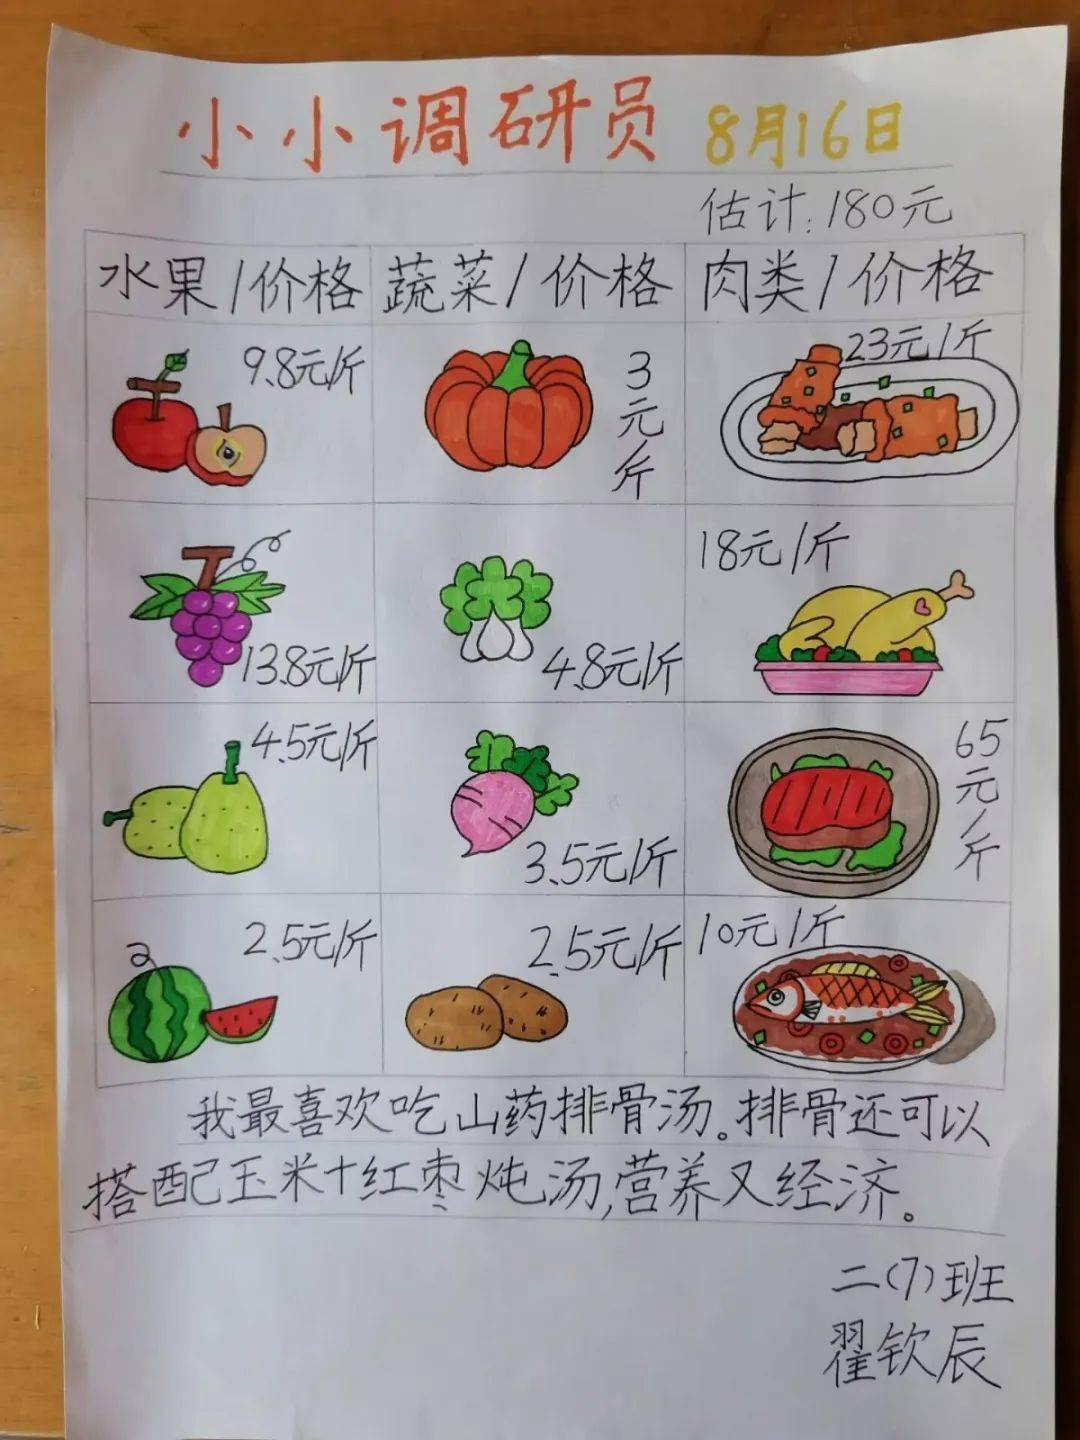 小小调研员 8月16日
估计:180元
水果/价格 蔬菜/价格 肉类/价格
9.8元/斤 3元/斤 23元/斤
13.8元/斤 4.8元/斤 18元/斤
4.5元/斤 3.5元/斤 65元/斤
2.5元/斤 2.5元/斤 10元/斤
我最喜欢吃山药排骨汤。排骨还可以
搭配玉米+红枣炖汤,营养又经济。
二(7)班
翟钦辰